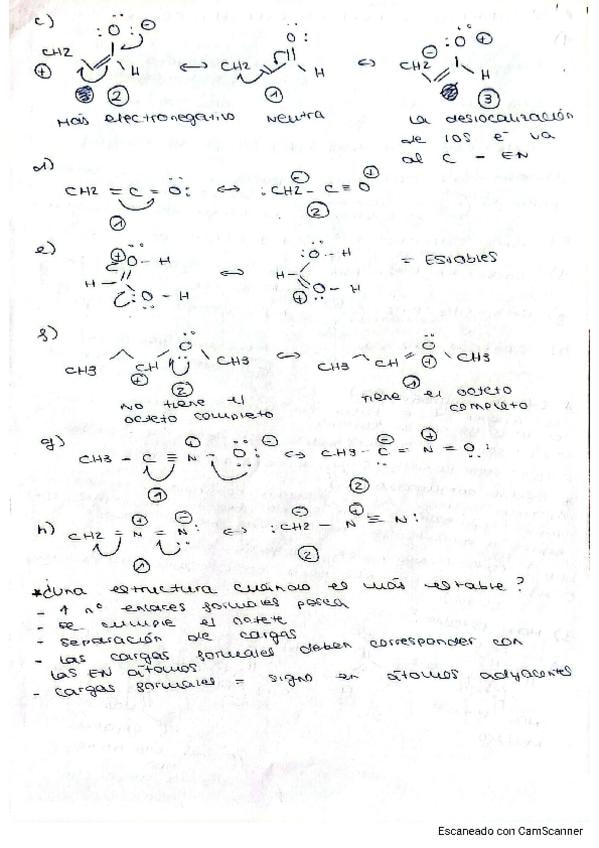 c)
:Ö: ⊖ :O: :O: ⊕
CH2 CH2 ⊖ CH2
⊕ H ↔ H ↔ H
② ① ③
Más electronegativo Neutra La deslocalización
de los e⁻ va
al C - EN
d)
CH2 = C = Ö: ↔ :CH2 - C ≡ O
⊖ ⊕
① ②
e)
⊕ Ö - H :Ö - H
H ↔ H = Estables
:Ö - H ⊕ O - H
f)
CH3 CH Ö CH3 ↔ CH3 CH = O CH3
⊕ ⊕
② ①
No tiene el tiene el octeto
octeto completo completo
g)
⊕ ⊖ ⊖ ⊕
CH3 - C ≡ N - Ö: ↔ CH3 - C = N = O:
① ②
h)
⊕ ⊖ ⊖ ⊕
CH2 = N = N: ↔ :CH2 - N ≡ N:
① ②
*¿una estructura cuándo es más estable?
- ↑ nº enlaces formales posea
- se cumple el octete
- separación de cargas
- las cargas formales deben corresponder con
las EN átomos
- cargas formales = signo en átomos adyacentes
Escaneado con CamScanner